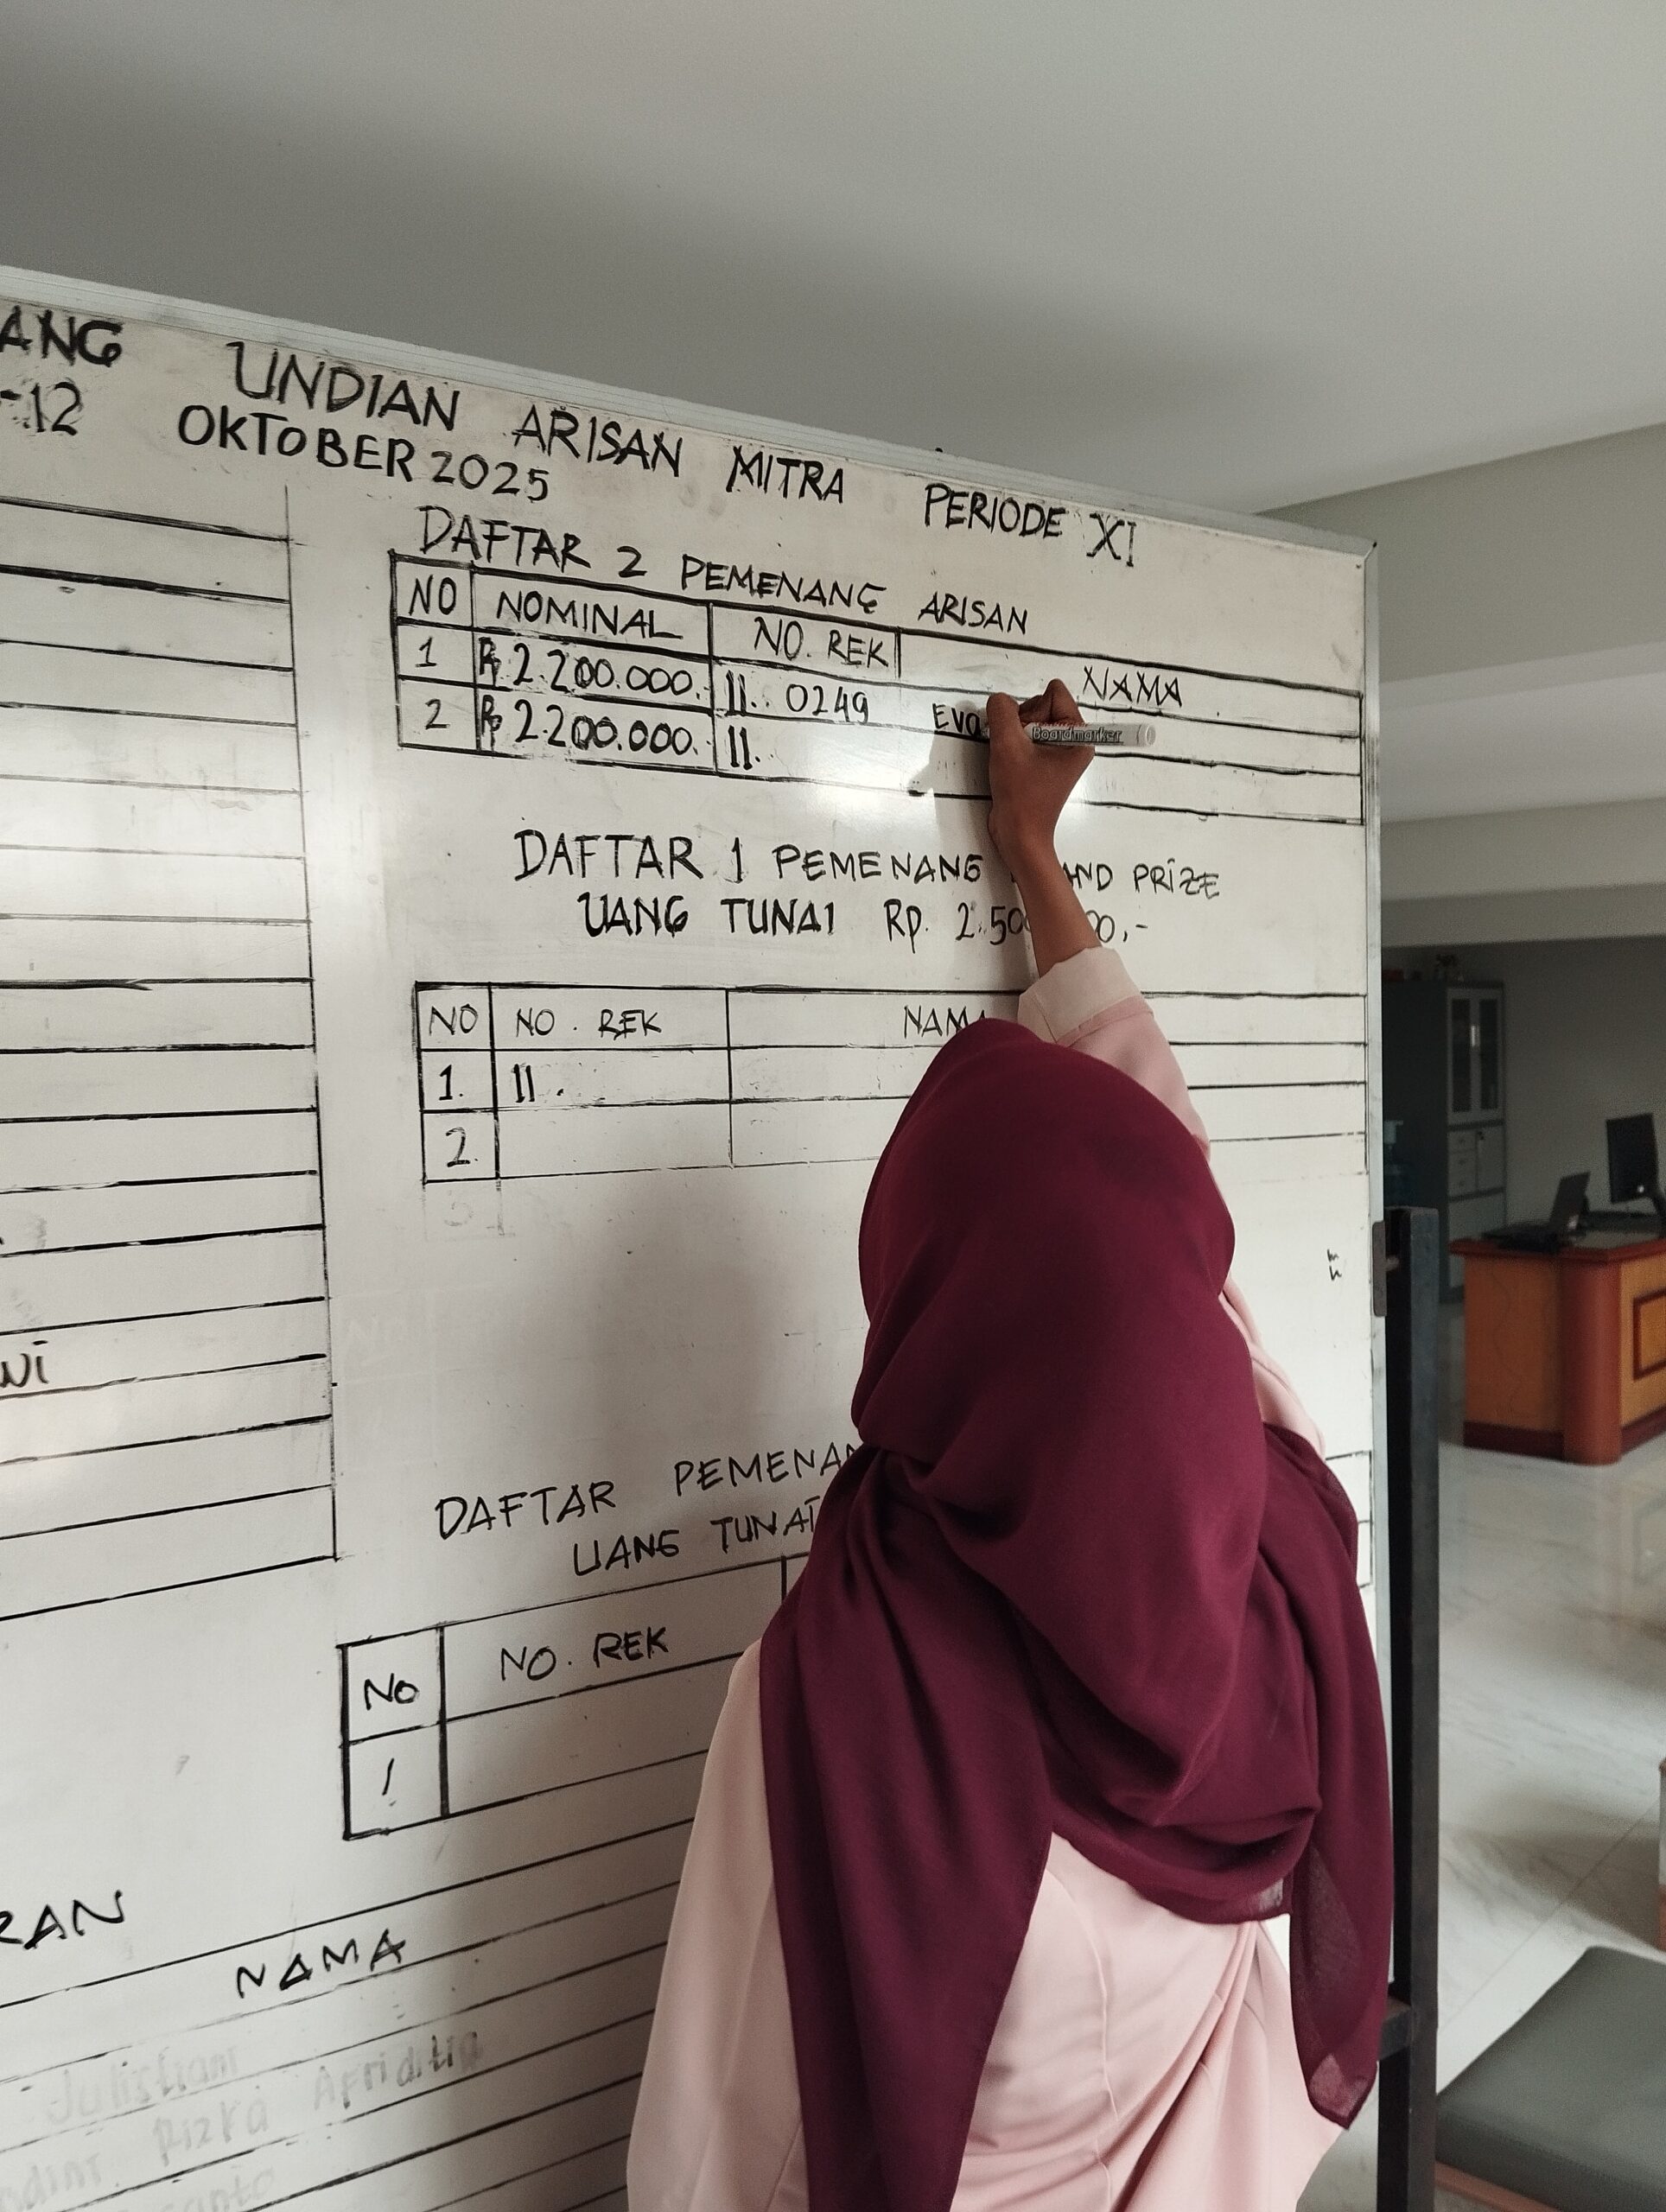 ANG UNDIAN ARISAN MITRA PERIODE XI
-12 OKTOBER 2025
DAFTAR 2 PEMENANG ARISAN
NO NOMINAL NO. REK NAMA
1 Rp 2.200.000. 11.. 0249 Eva
2 Rp 2.200.000. 11.
Boardmarker
DAFTAR 1 PEMENANG AND PRIZE
UANG TUNAI Rp. 2.500 00,-
NO NO. REK NAMA
1. 11.
2.
WI
DAFTAR PEMENAN
UANG TUNAI
NO NO. REK
1
RAN
NAMA
Julistiani
Rizka Afriditia